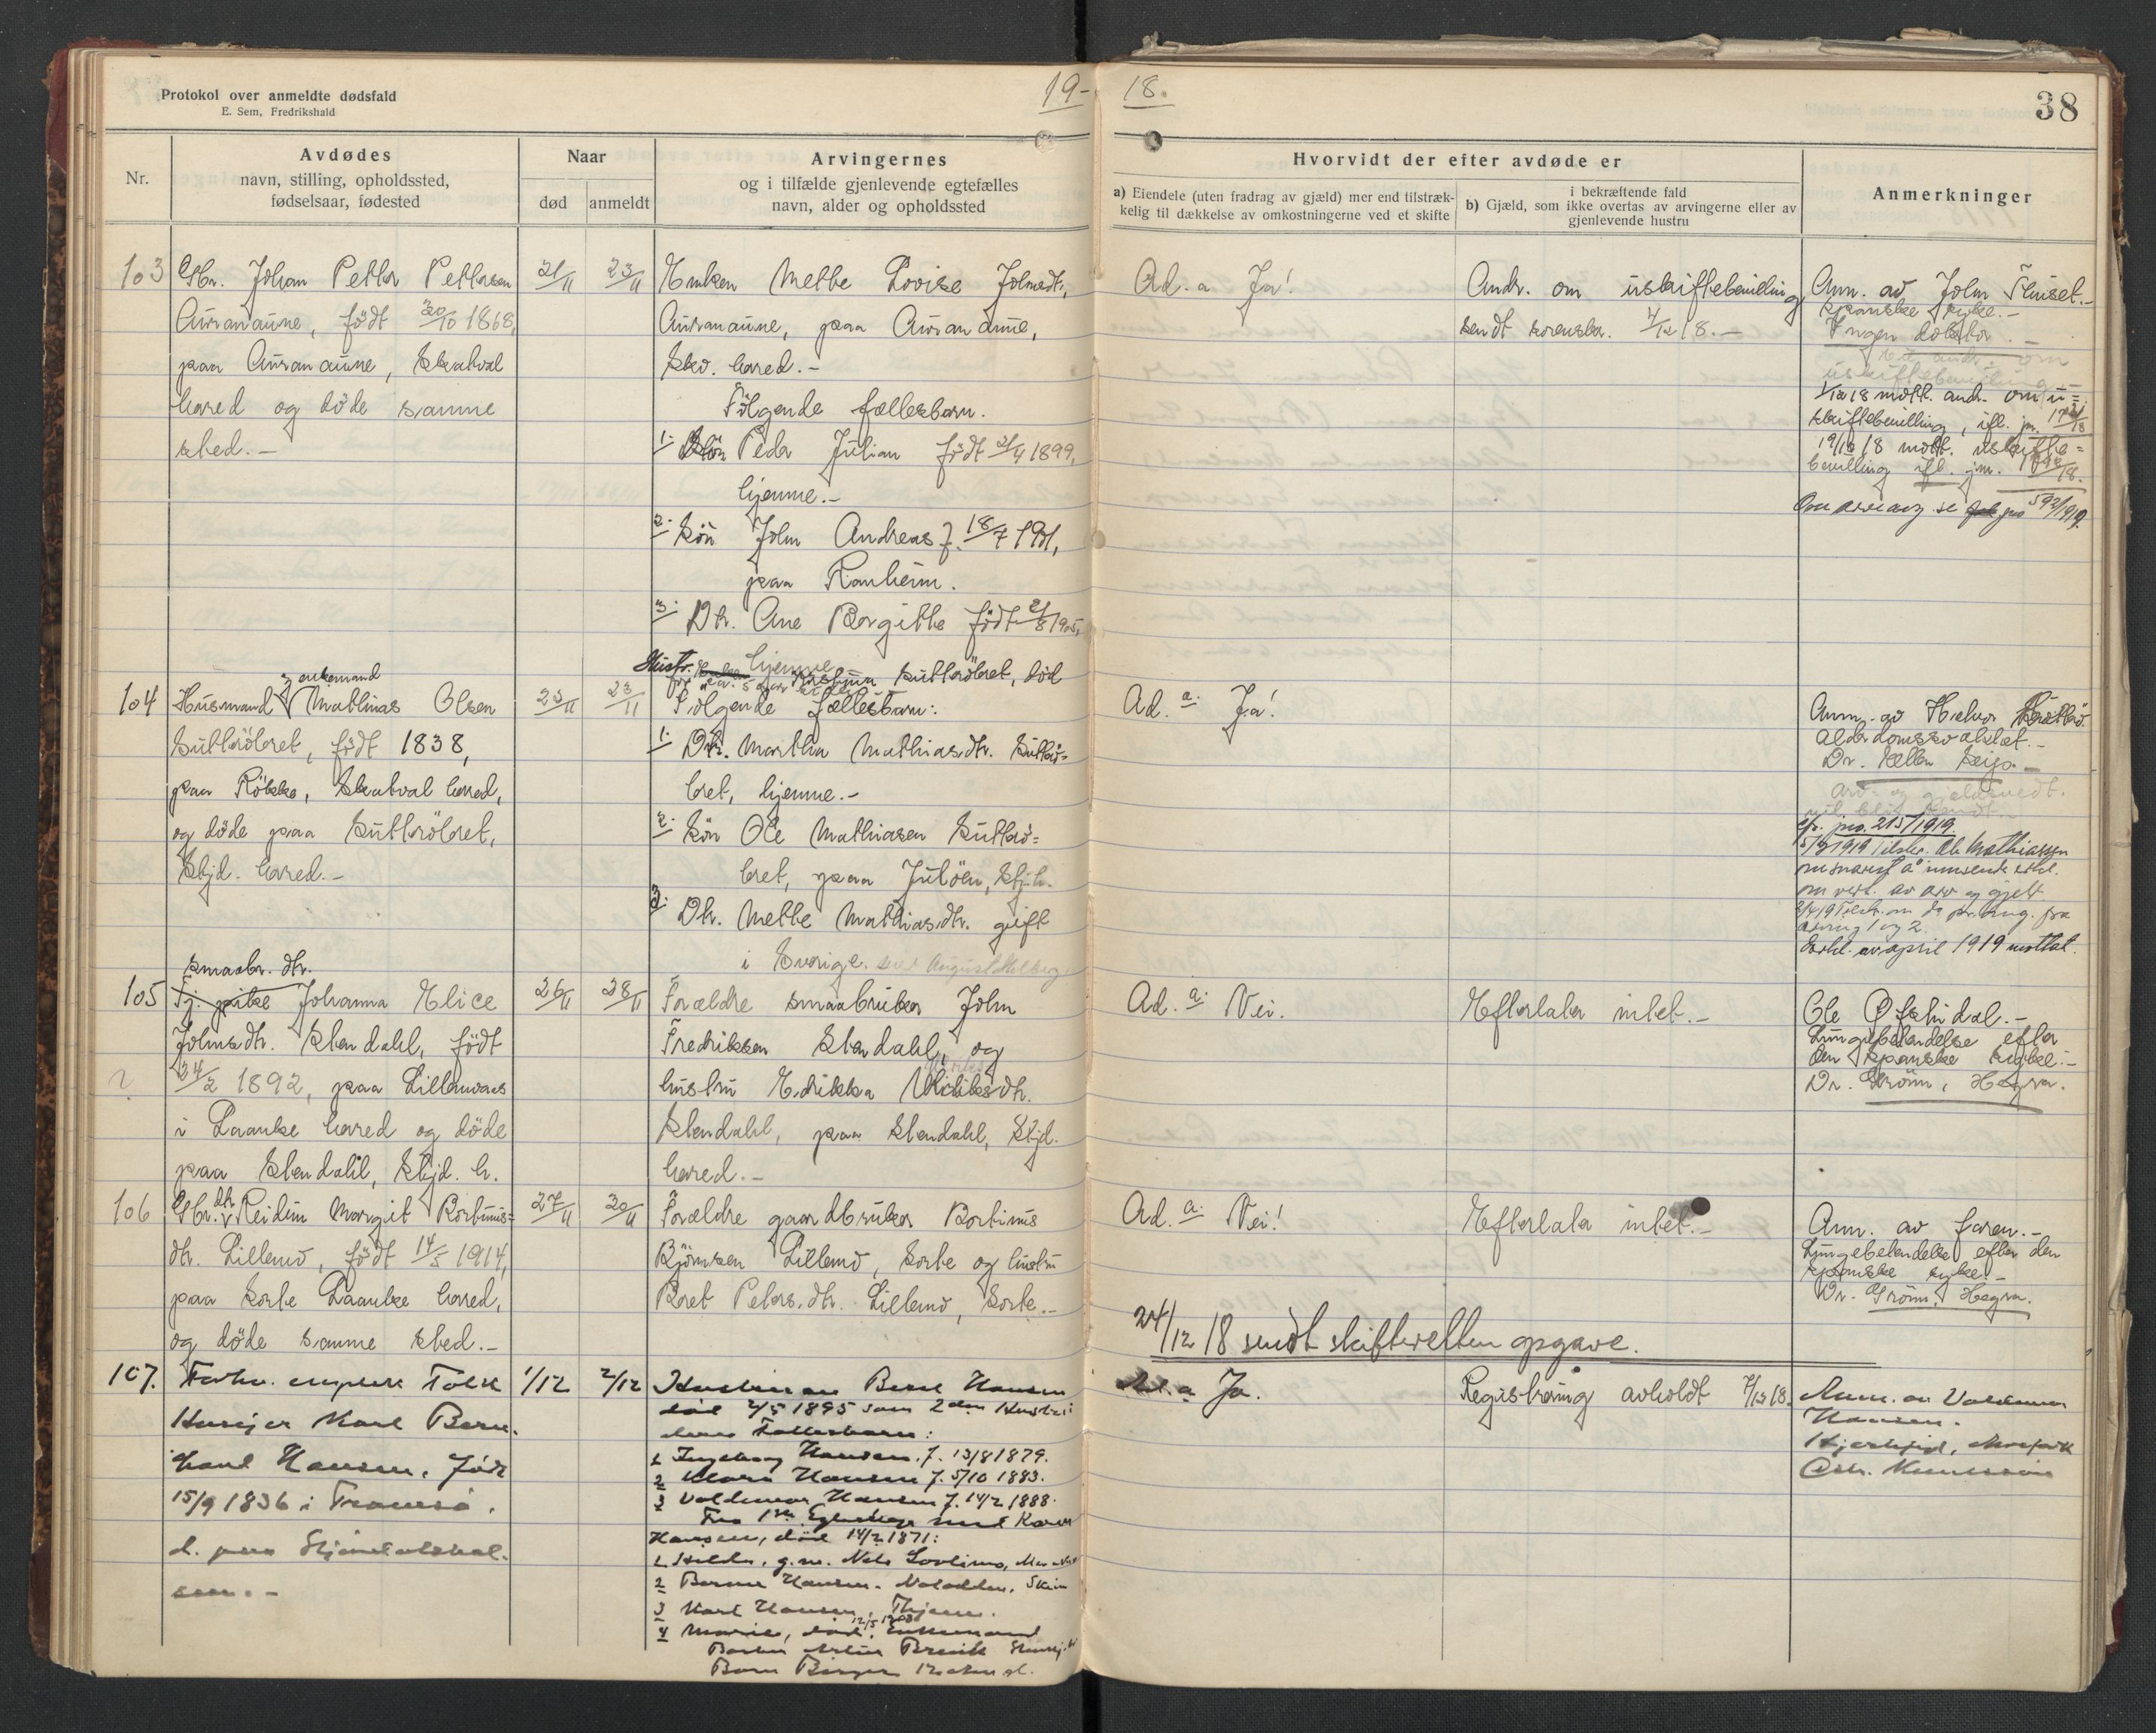 Protokol over anmeldte dødsfald
E. Sem, Fredrikshald
19-
18.
38
Nr.
Avdødes
navn, stilling, opholdssted,
fødselsaar, fødested
Naar
død
anmeldt
Arvingernes
og i tilfælde gjenlevende egtefælles
navn, alder og opholdssted
Hvorvidt der efter avdøde er
a) Eiendele (uten fradrag av gjæld) mer end tilstræk-
kelig til dækkelse av omkostningerne ved et skifte
i bekræftende fald
b) Gjæld, som ikke overtas av arvingerne eller av
gjenlevende hustru
Anmerkninger
103
Gbr. Johan Petter Pettersen
Auranaune, født 30/10 1868,
paa Auranaune, Skatval
hered og døde samme
sted.-
21/11
23/11
Enken Mette Lovise Johnsdtr.,
Auranaune, paa Auranaune,
Skv. hered.-
Følgende fællesbarn.
1. Søn Peder Julian født 21/4 1899,
hjemme.-
2. Søn John Andreas f. 18/7 1901,
paa Ranheim.
3. Dtr. Ane Borgitte født 21/8 1905,
hjemme
Ad. a Ja!
Andr. om uskiftebevilling
sendt sorenskr. 4/12 18.-
Anm. av John Fluset.-
Spanske syke.-
Ingen doktor.-
andr. om
uskiftebevilling.-
1/12 18 mott. andr. om u=
skiftebevilling, ifl. jn.
19/12 18 mott. uskifte=
bevilling ifl. jnr.
Om arving se jno 592/1919
104
enkemand
Husmand Mathias Olsen
Kutrøbret, født 1838,
paa Røkke, Skatval hered,
og døde paa Kutrøbret,
Stjd. hered.-
23/11
23/11
Hustr. død
Følgende fællesbarn:
1. Dtr. Martha Mathiasdtr.
bret, hjemme.-
2. Søn Ole Mathiasen
bret, paa Jutøen, Stj.h.
3. Dtr. Mette Mathiasdtr. gift
i Sverige.
Ad. a. Ja!
Anm. av Halvor
Alderdomssvakhet.-
Dr.
Arv- og gjeldsvedt.
cfr. jno. 215/1919
Ole Mathiassen
om vedt. av arv og gjeld
arving 1 og 2.
Erkl. av april 1919 mottat.
105
Smaabr. dtr.
Tj. pike Johanna Elice
Johnsdtr. Stendahl, født
24/2 1892, paa Lillemoens
i Laanke hered og døde
paa Stendahl, Stjd. h.
26/11
28/11
Forældre smaabruker John
Fredriksen Stendahl, og
hustru Edrikka
Stendahl, paa Stendahl, Stjd.
hered.-
Ad. a. Nei.
Efterlater intet.-
Ole Ø. Stendal.-
Lungebetændelse efter
den spanske syke.-
Dr. Grönn, Hegra.
106
Gbr. dtr. Reidun Margit Bortinus=
dtr. Lillemo, født 14/5 1914,
paa Korte Laanke hered,
og døde samme sted.-
27/11
30/11
Forældre gaardbruker Bortinus
Bjørnsen Lillemo, Korte og hustru
Beret Petersdtr. Lillemo, Korte.-
Ad. a. Nei!
Efterlater intet.-
Anm. av faren.-
Lungebetændelse efter den
spanske syke.-
Dr. Grönn, Hegra.
24/12 18 sendt skifteretten opgave.
107.
Forhv.
Huseier Karl Bern-
hard Hansen, født
15/9 1836 i Tromsø,
d. paa Stjørdalshal-
sen.-
1/12
2/12
Hustruen Hansen
død 2/5 1895 som 2den Hustru
deres Fællesbarn:
1 Ingeborg Hansen f. 13/8 1879.
2 Klara Hansen f. 5/10 1883.
3 Valdemar Hansen f. 14/2 1888.
Fra 1ste Egteskap med Karen
Hansen, død 14/2 1871:
1 Hilda, g.m. Nels
2 Hansen.
3 Karl Hansen, Hjemme.
4 Marie, død 12/5 1900. Enkemand
Ad. a Ja.
Registrering avholdt 7/12 18.
Anm. av Valdemar
Hansen.
Hjertefeil,